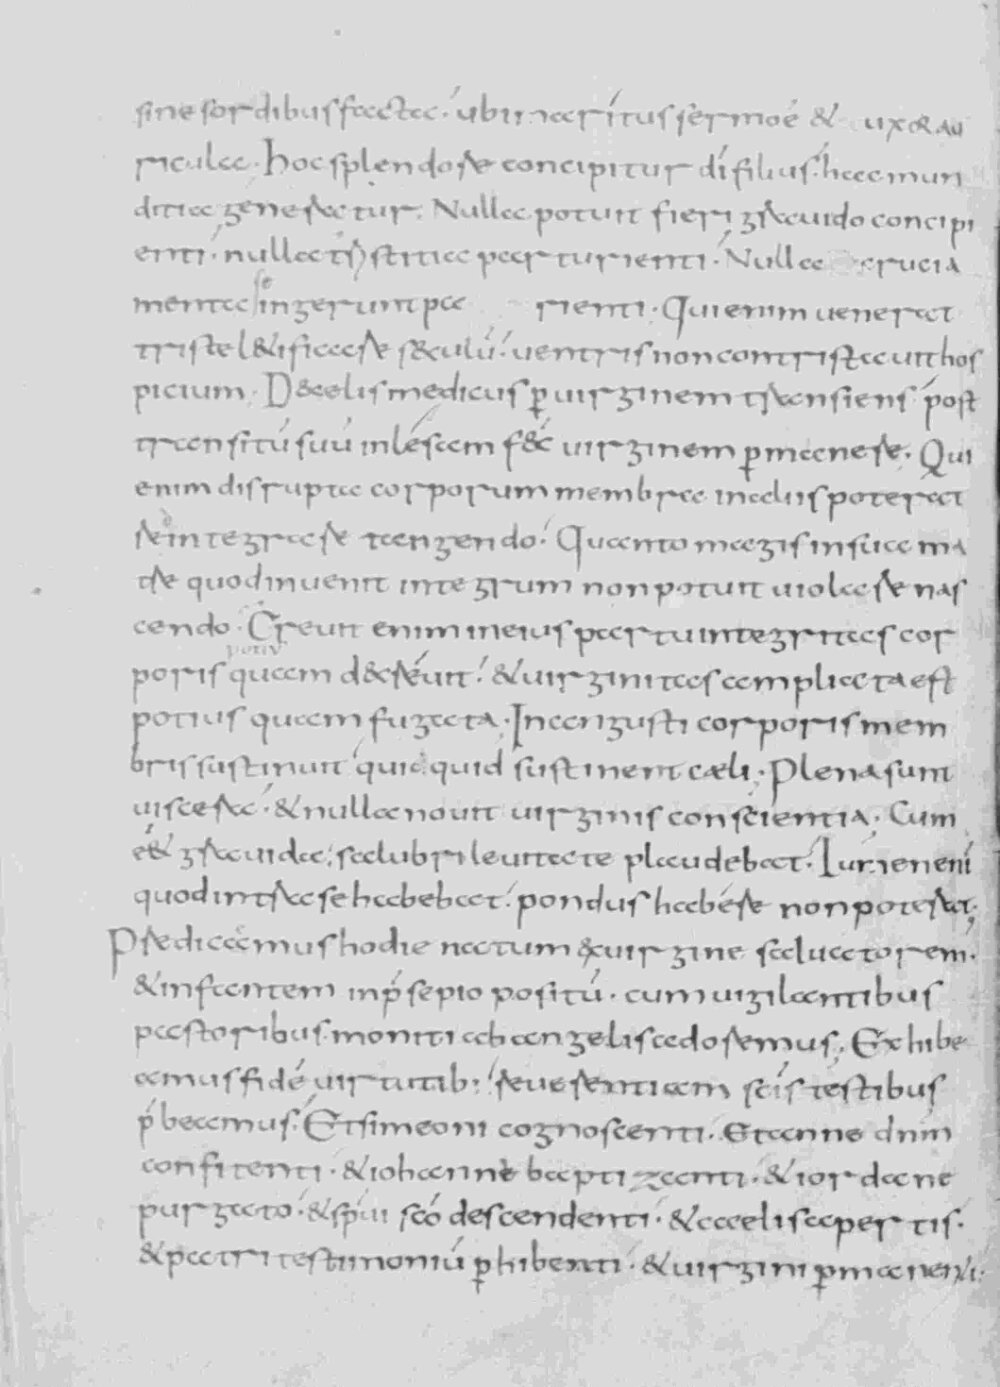 sine sordibus faecta · ubi maritus sermo ē & uxor au
ricula · Hoc splendore concipitur dī filius · haec mun
ditia generatur · Nulla potuit fieri grauido concipi
enti · nulla tristitia parturienti · Nulla crucia
menta ingerunt pa rienti · Qui enim uenerat
tristē lætificare sæculū · uentris non contristauit hos
picium · De cælis medicus ꝑ uirginem transiens post
transitū suū inlesam fec uirginem ꝑmanere · Qui
enim disrupta corporum membra in aliis poterat
reintegrare tangendo · Quanto magis in sua ma
tre quod inuenit integrum non potuit uiolare nas
cendo · Creuit enim in eius partu integritas cor
poris quam decreuit · & uirginitas ampliata est
potius quam fugata · In angusti corporis mem
bris sustinuit quicquid sustinent cæli · Plena sunt
uiscera · & nulla nouit uirginis conscientia · Cum
e& grauida · salubri leuitate plaudebat · Lumen enī
quod intra se habebat · pondus habere non poterat ·
Predicamus hodie natum ex uirgine saluatorem ·
& infantem in p̄sepio positū · cum uigilantibus
pastoribus moniti ab angelis adoremus · Exhibe
amus fidē uirtutib· reuerentiam sc̄is testibus
p̄beamus · Et simeoni cognoscenti · Et anne dnm
confitenti · & iohanne baptizanti · & iordane
purgato · & sp̄ui sc̄o descendenti · & caelis apertis ·
& patri testimoniū ꝑhibenti · & uirgini ꝑmanenti ·